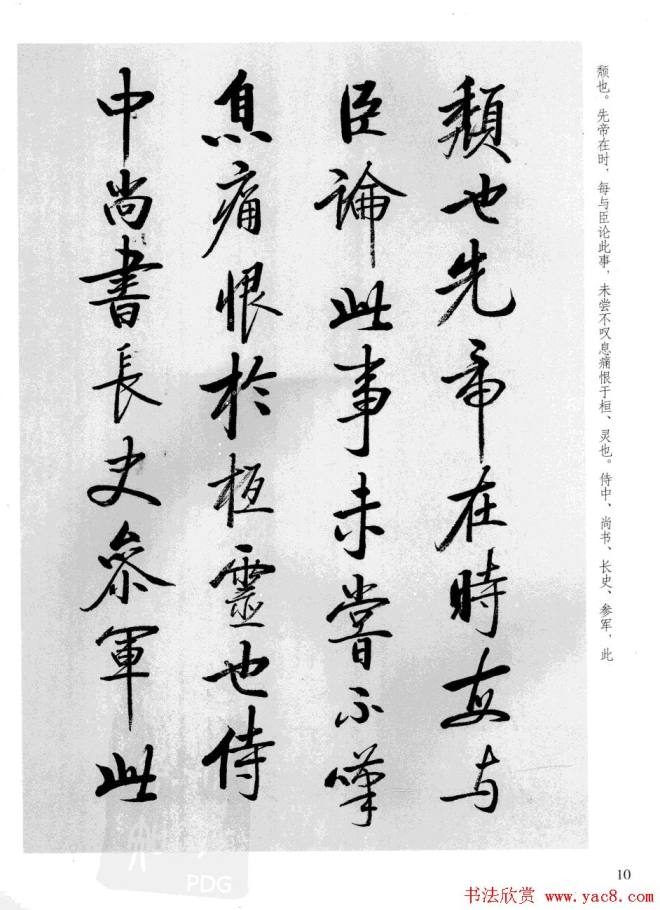 颓也。先帝在时，每与臣论此事，未尝不叹息痛恨于桓、灵也。侍中、尚书、长史、参军，此
頹也先帝在時每与
臣論此事未嘗不嘆
息痛恨於桓靈也侍
中尚書長史參軍此
PDG
10
书法欣赏 www.yac8.com